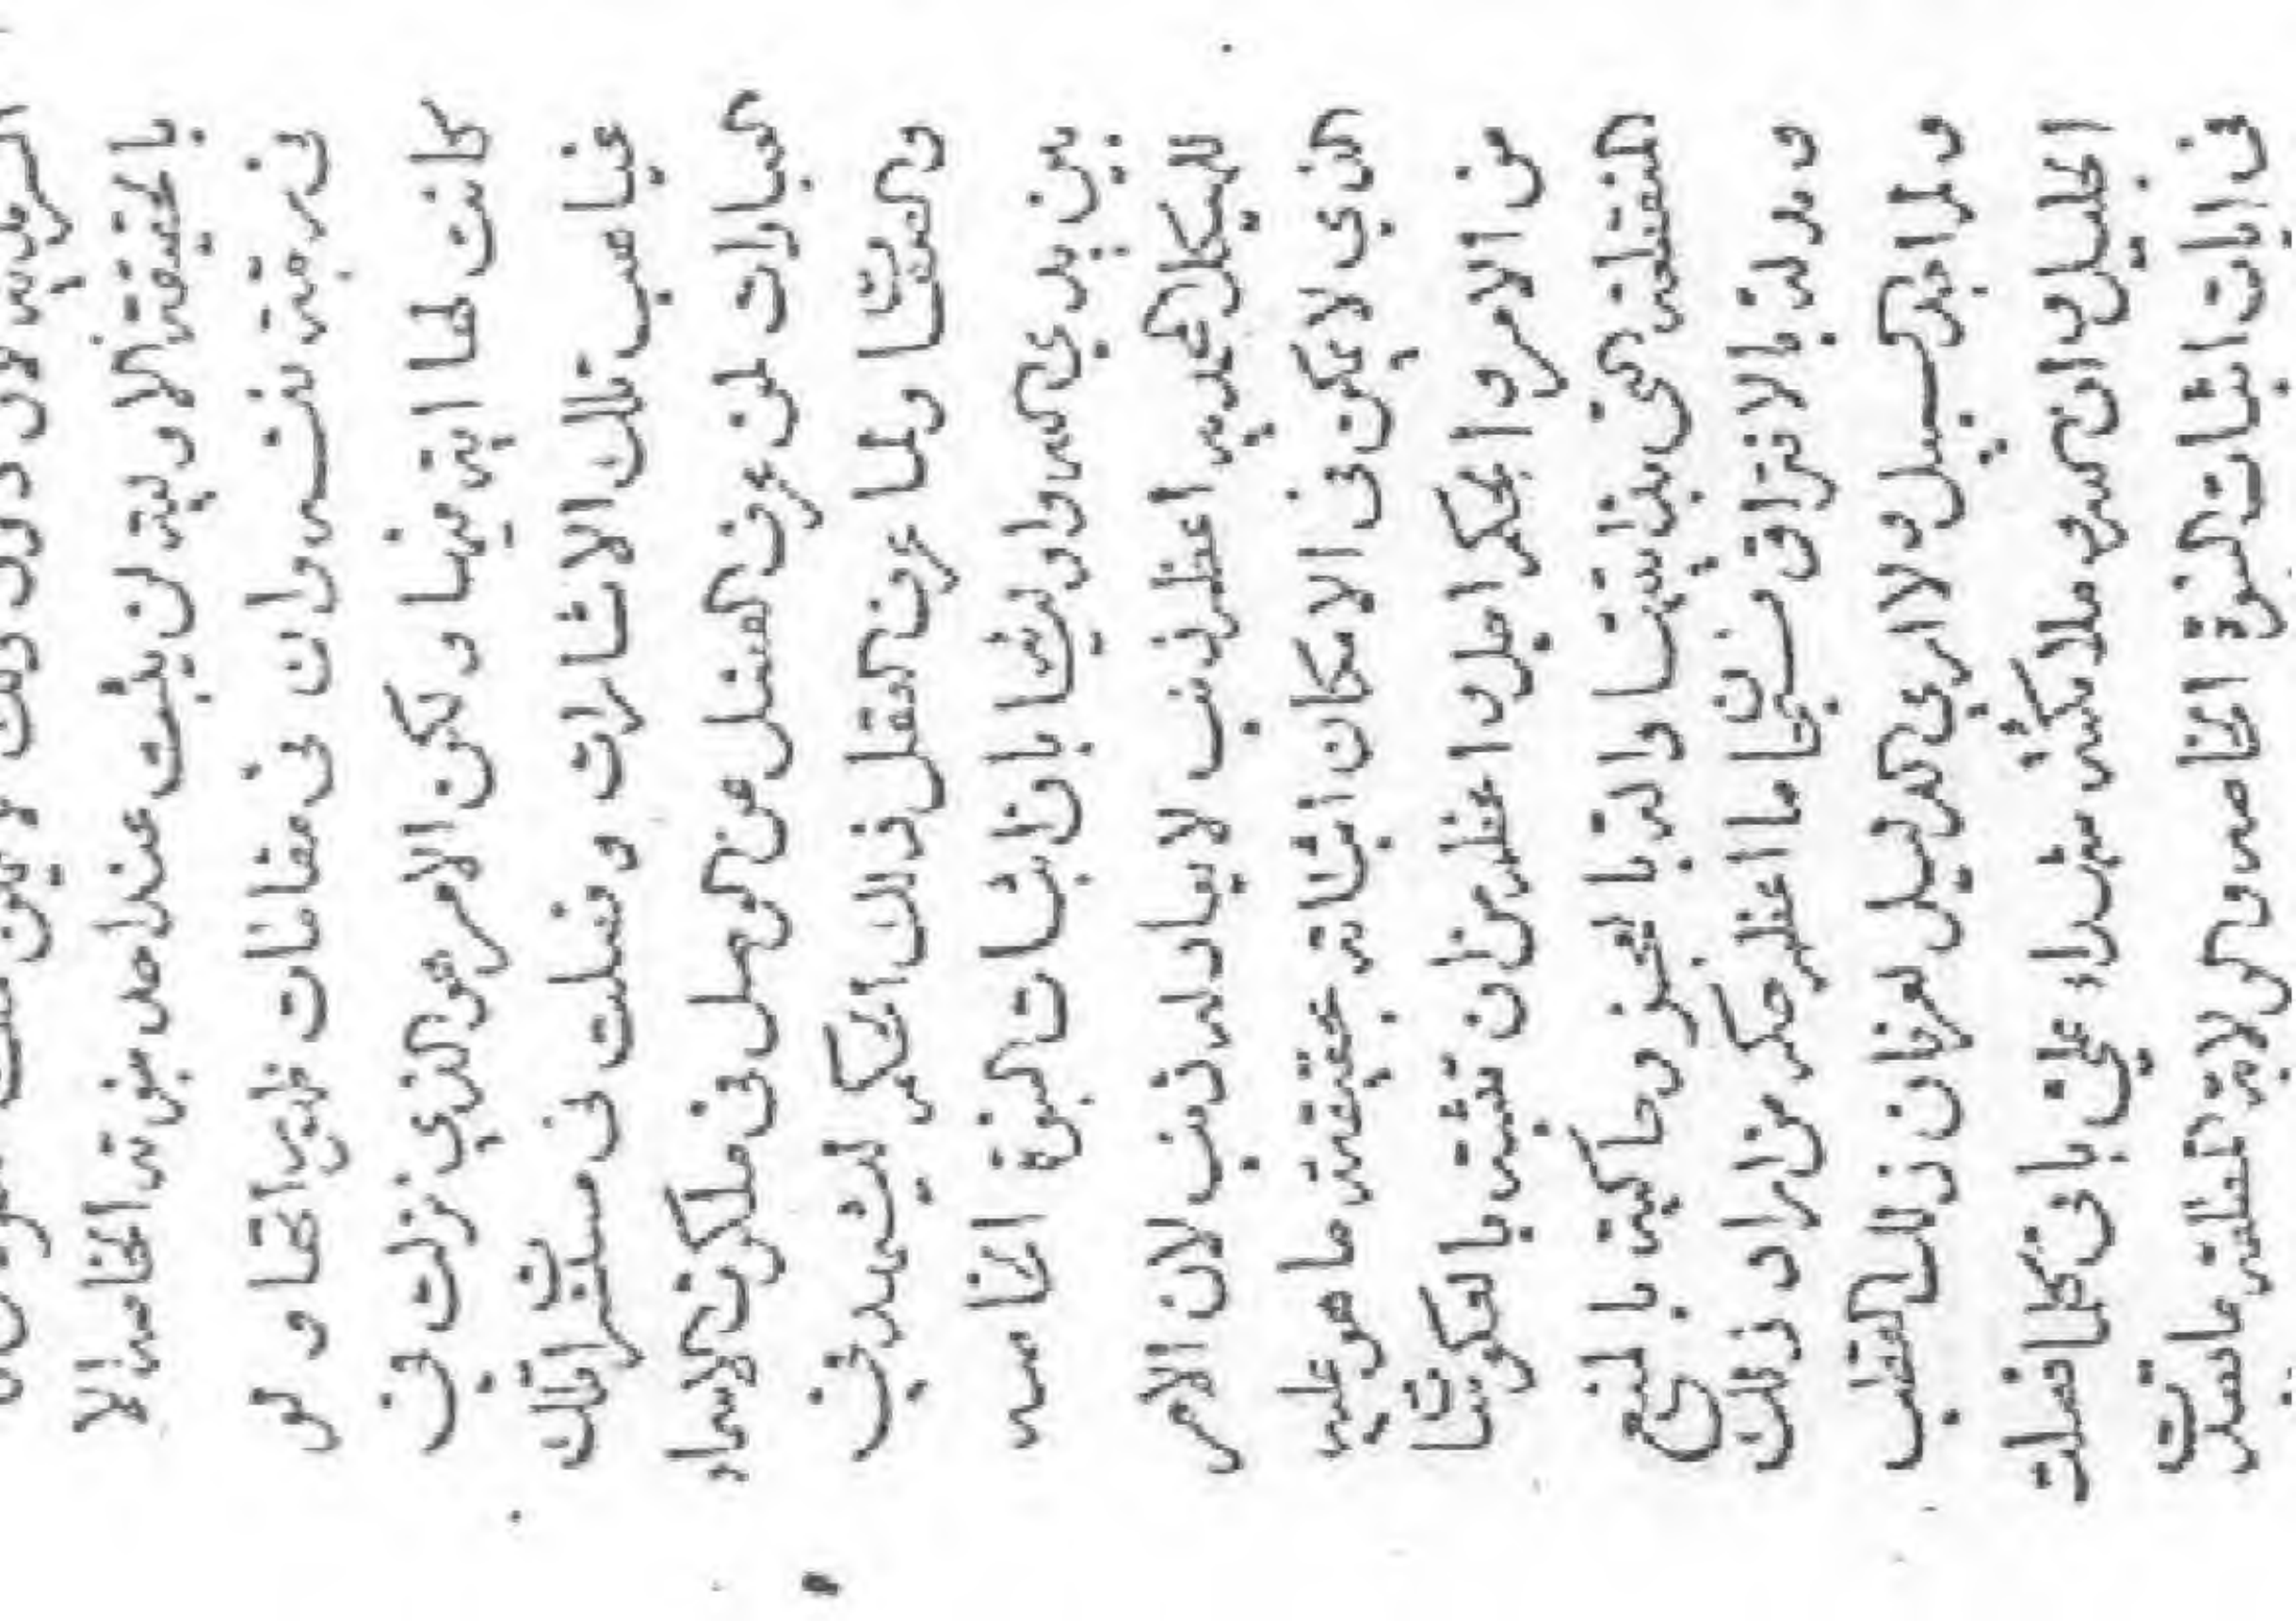 بالحقيقة الاولية لن يثبت عند احد نبوته الخاصة الا
في رتبة نفسه وان في مقامات ظهوراتها ولو
كانت لها اية منها ولكن الامر هو الذي نزلت في
غياهب تلك الاشارات وفصلت في مستسرات تلك
العبارات لمن عرف الفصل عن الوصل في ملكوت الاسماء
والصفات ولما عرف العقل ذلك الحكم ليشهد في
بين يدي الله و بان اثبات النبوة الخاصة
للهيكل المحمدية اعظم ذنب لا يعادله ذنب لان الامر
الذي لا يمكن في الامكان اثباته بحقيقته ما هو عليه
من الامر والحكم اجل واعظم من ان تثبته بالمكونات
المنفعلة التي بذاتيتها دالة بالعجز وحاكية بالمنع
ومدلة بالافتراق ما اعظم حكم من اراد ذلك
ولم اجد السبيل ولا ارى الدليل لعرفان ذلك المطلب
الجليل وان الله وملائكته شهداء علي باني كلما فصلت
في ايات اثبات النبوة الخاصة والولاية المطلقة ما قصدت